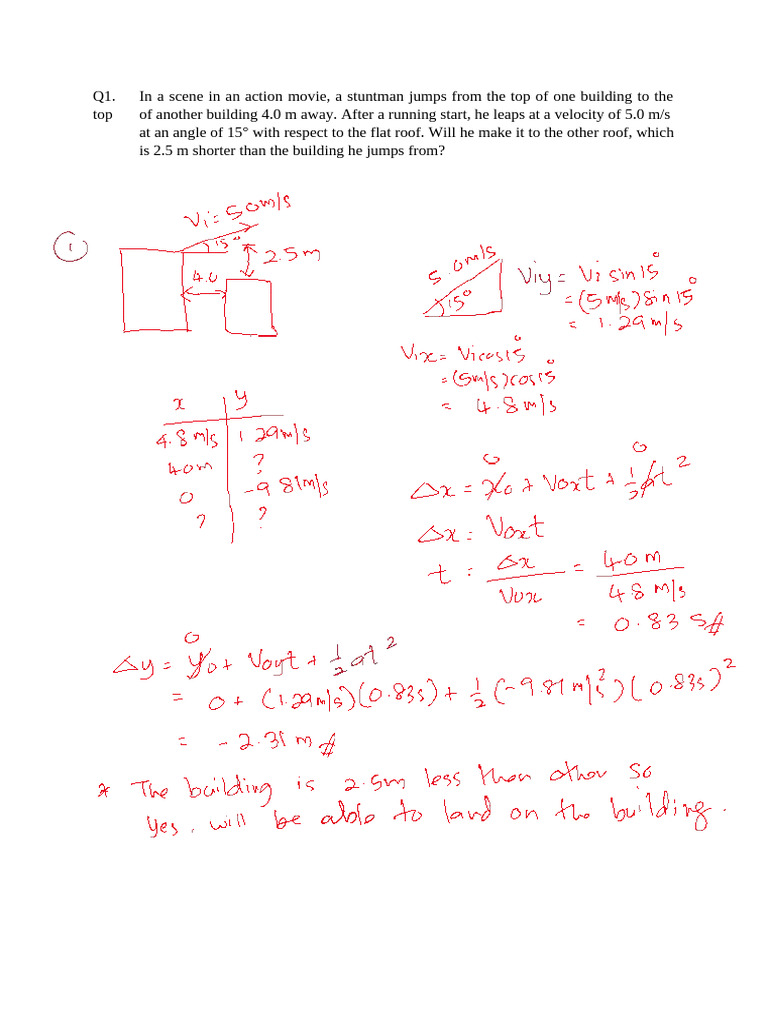 Q1. In a scene in an action movie, a stuntman jumps from the top of one building to the
top of another building 4.0 m away. After a running start, he leaps at a velocity of 5.0 m/s
at an angle of 15° with respect to the flat roof. Will he make it to the other roof, which
is 2.5 m shorter than the building he jumps from?
Vi = 50m/s
1
15°
2.5m
4.0
5.0m/s
15°
Viy = Vi sin 15°
= (5 m/s) sin 15°
= 1.29 m/s
Vix = Vi cos 15°
= (5m/s) cos 15°
= 4.8 m/s
x y
4.8 m/s 1 29m/s
40m ?
0 -9 81m/s
? ?
0 0
Δx = x0 + V0xt + 1/2 at²
Δx = V0xt
t = Δx / V0x = 40 m / 48 m/s
= 0.83 s#
0
Δy = y0 + V0yt + 1/2 at²
= 0 + (1.29m/s)(0.83s) + 1/2 (-9.81 m/s²)(0.83s)²
= -2.31 m #
* The building is 2.5m less then other so
Yes, will be able to land on the building.